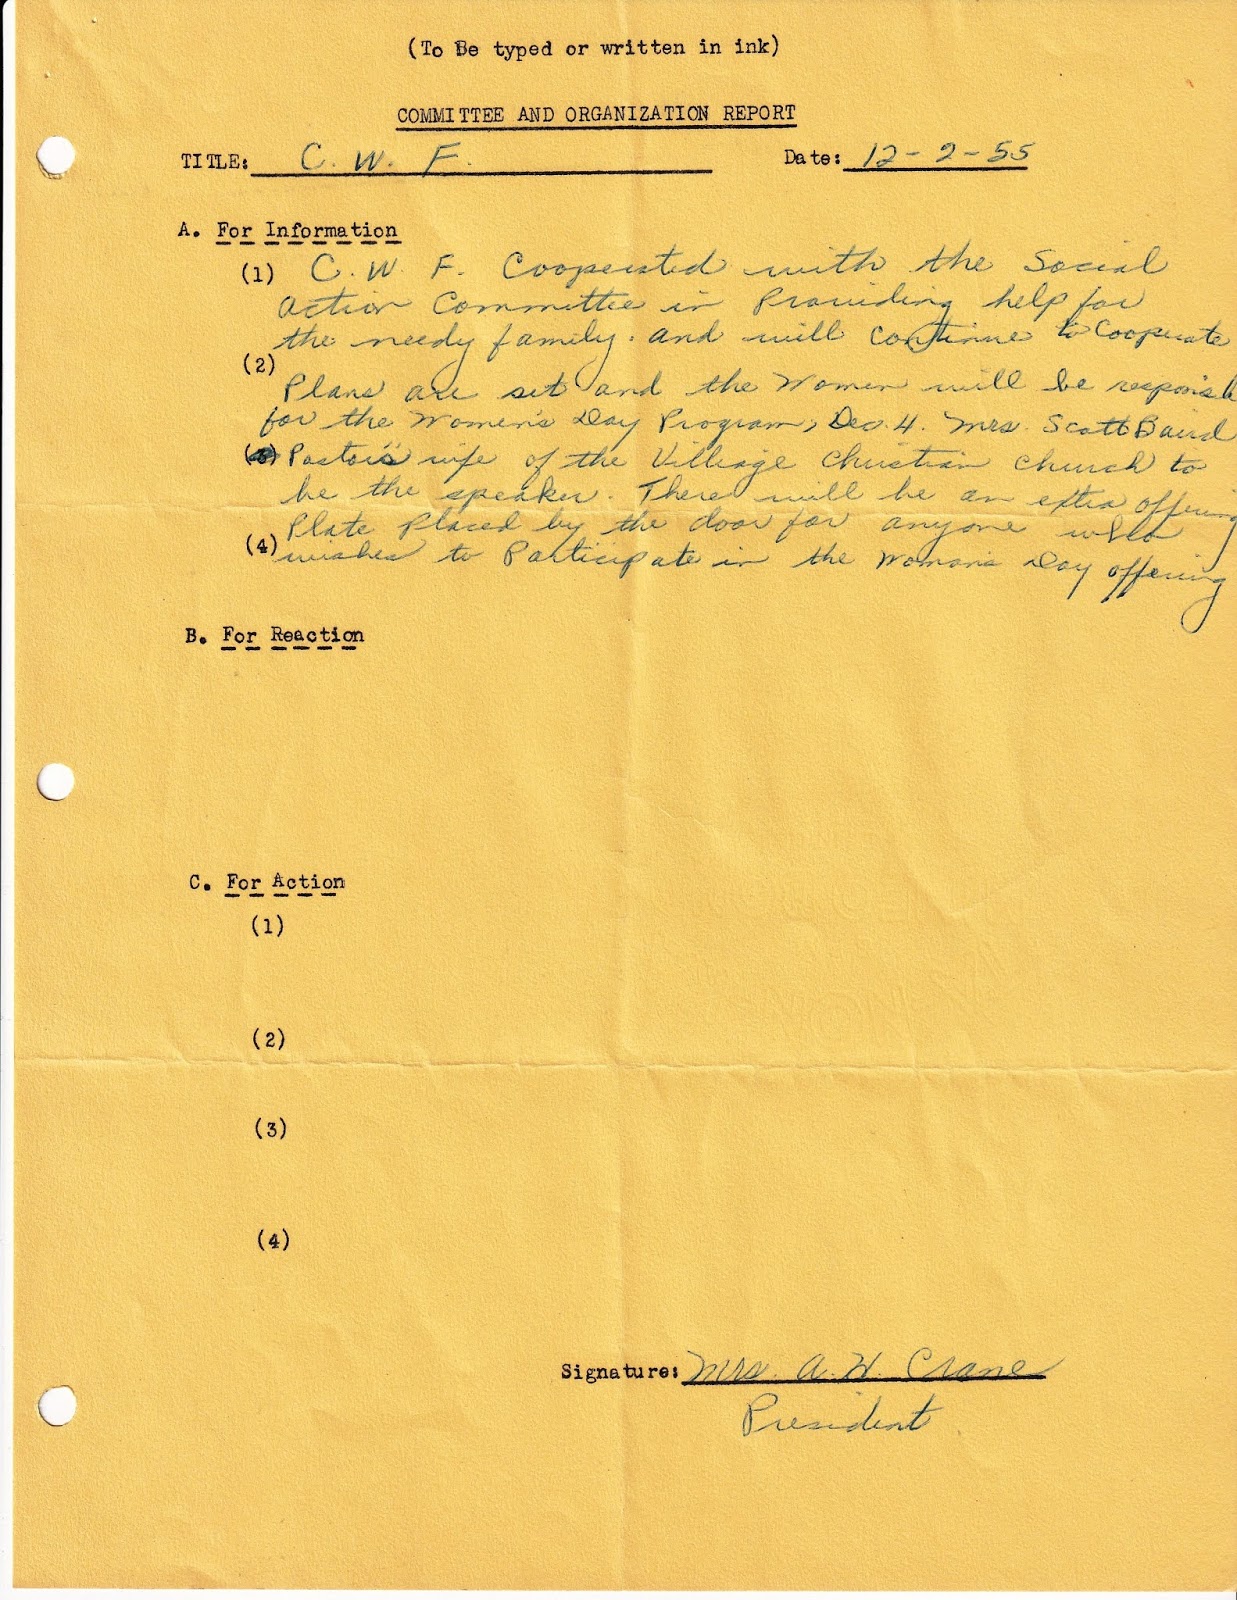 (To Be typed or written in ink)
COMMITTEE AND ORGANIZATION REPORT
TITLE: C. W. F. Date: 12-2-55
A. For Information
(1) C. W. F. Cooperated with the Social
Action Committee in Providing help for
the needy family. and will continue to Cooperate
(2)
Plans are set and the Women will be responsible
for the Women's Day Program, Dec. 4. Mrs. Scott Baird
Pastor's wife of the Village Christian Church to
be the speaker. There will be an extra offering
Plate Placed by the door for anyone who
(4) wishes to Participate in the Woman's Day offering
B. For Reaction
C. For Action
(1)
(2)
(3)
(4)
Signature: Mrs. A. H. Crane
President